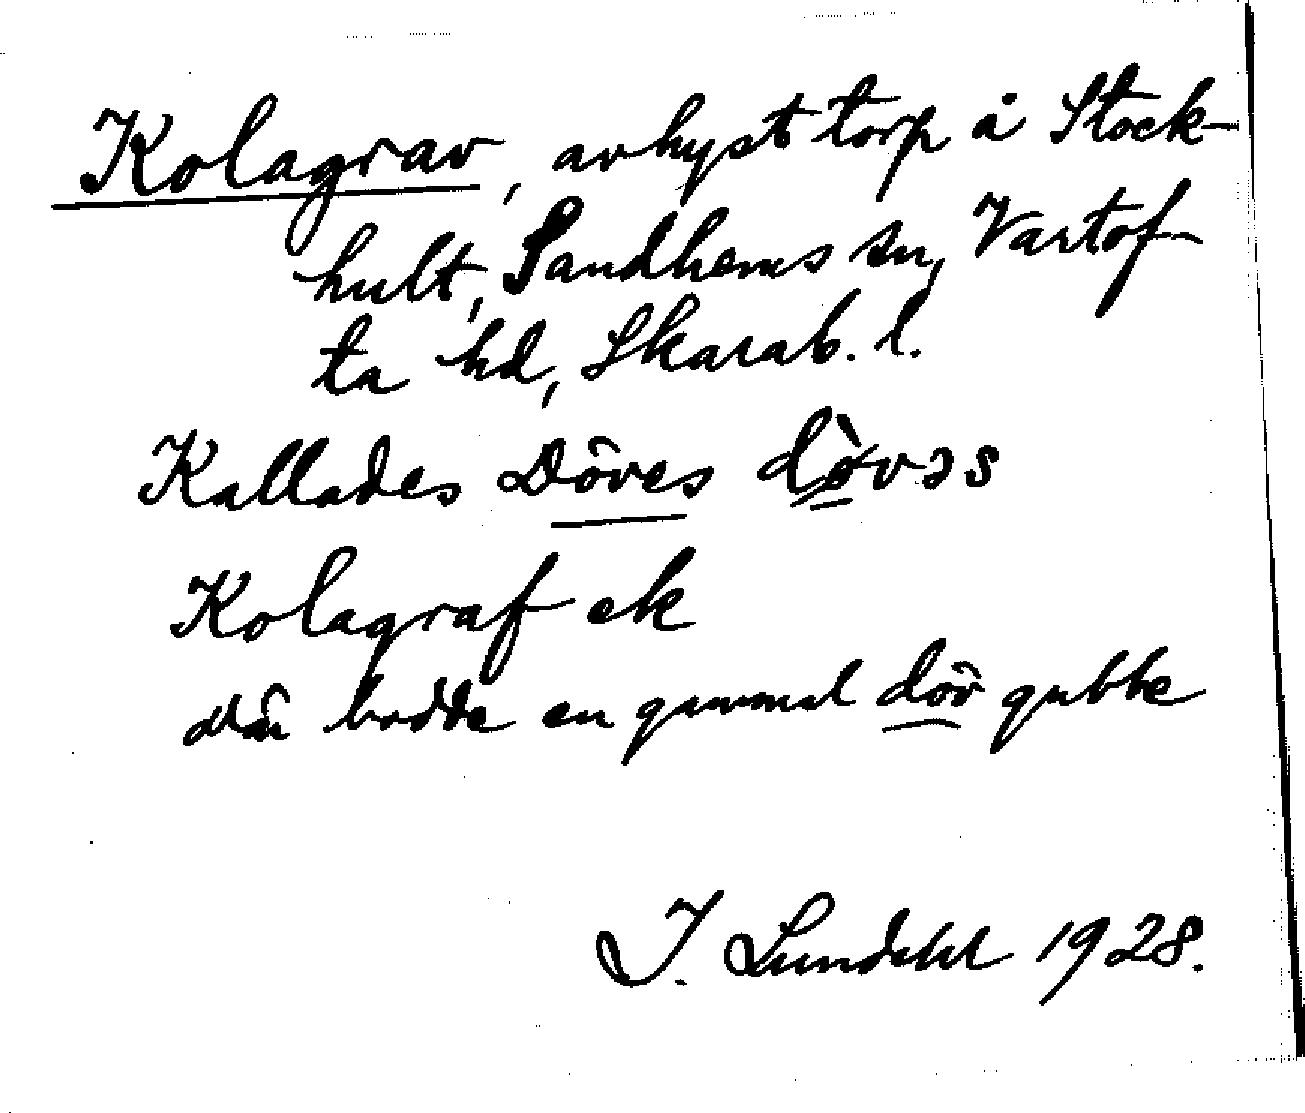 Kolagrav, avhyst torp å Stock-
hult, Sandhems sn, Vartof-
ta hd, Skarab. l.
Kallades Döves dòvəs
Kolagraf ek
där bodde en gammal döv gubbe
I. Lundahl 1928.